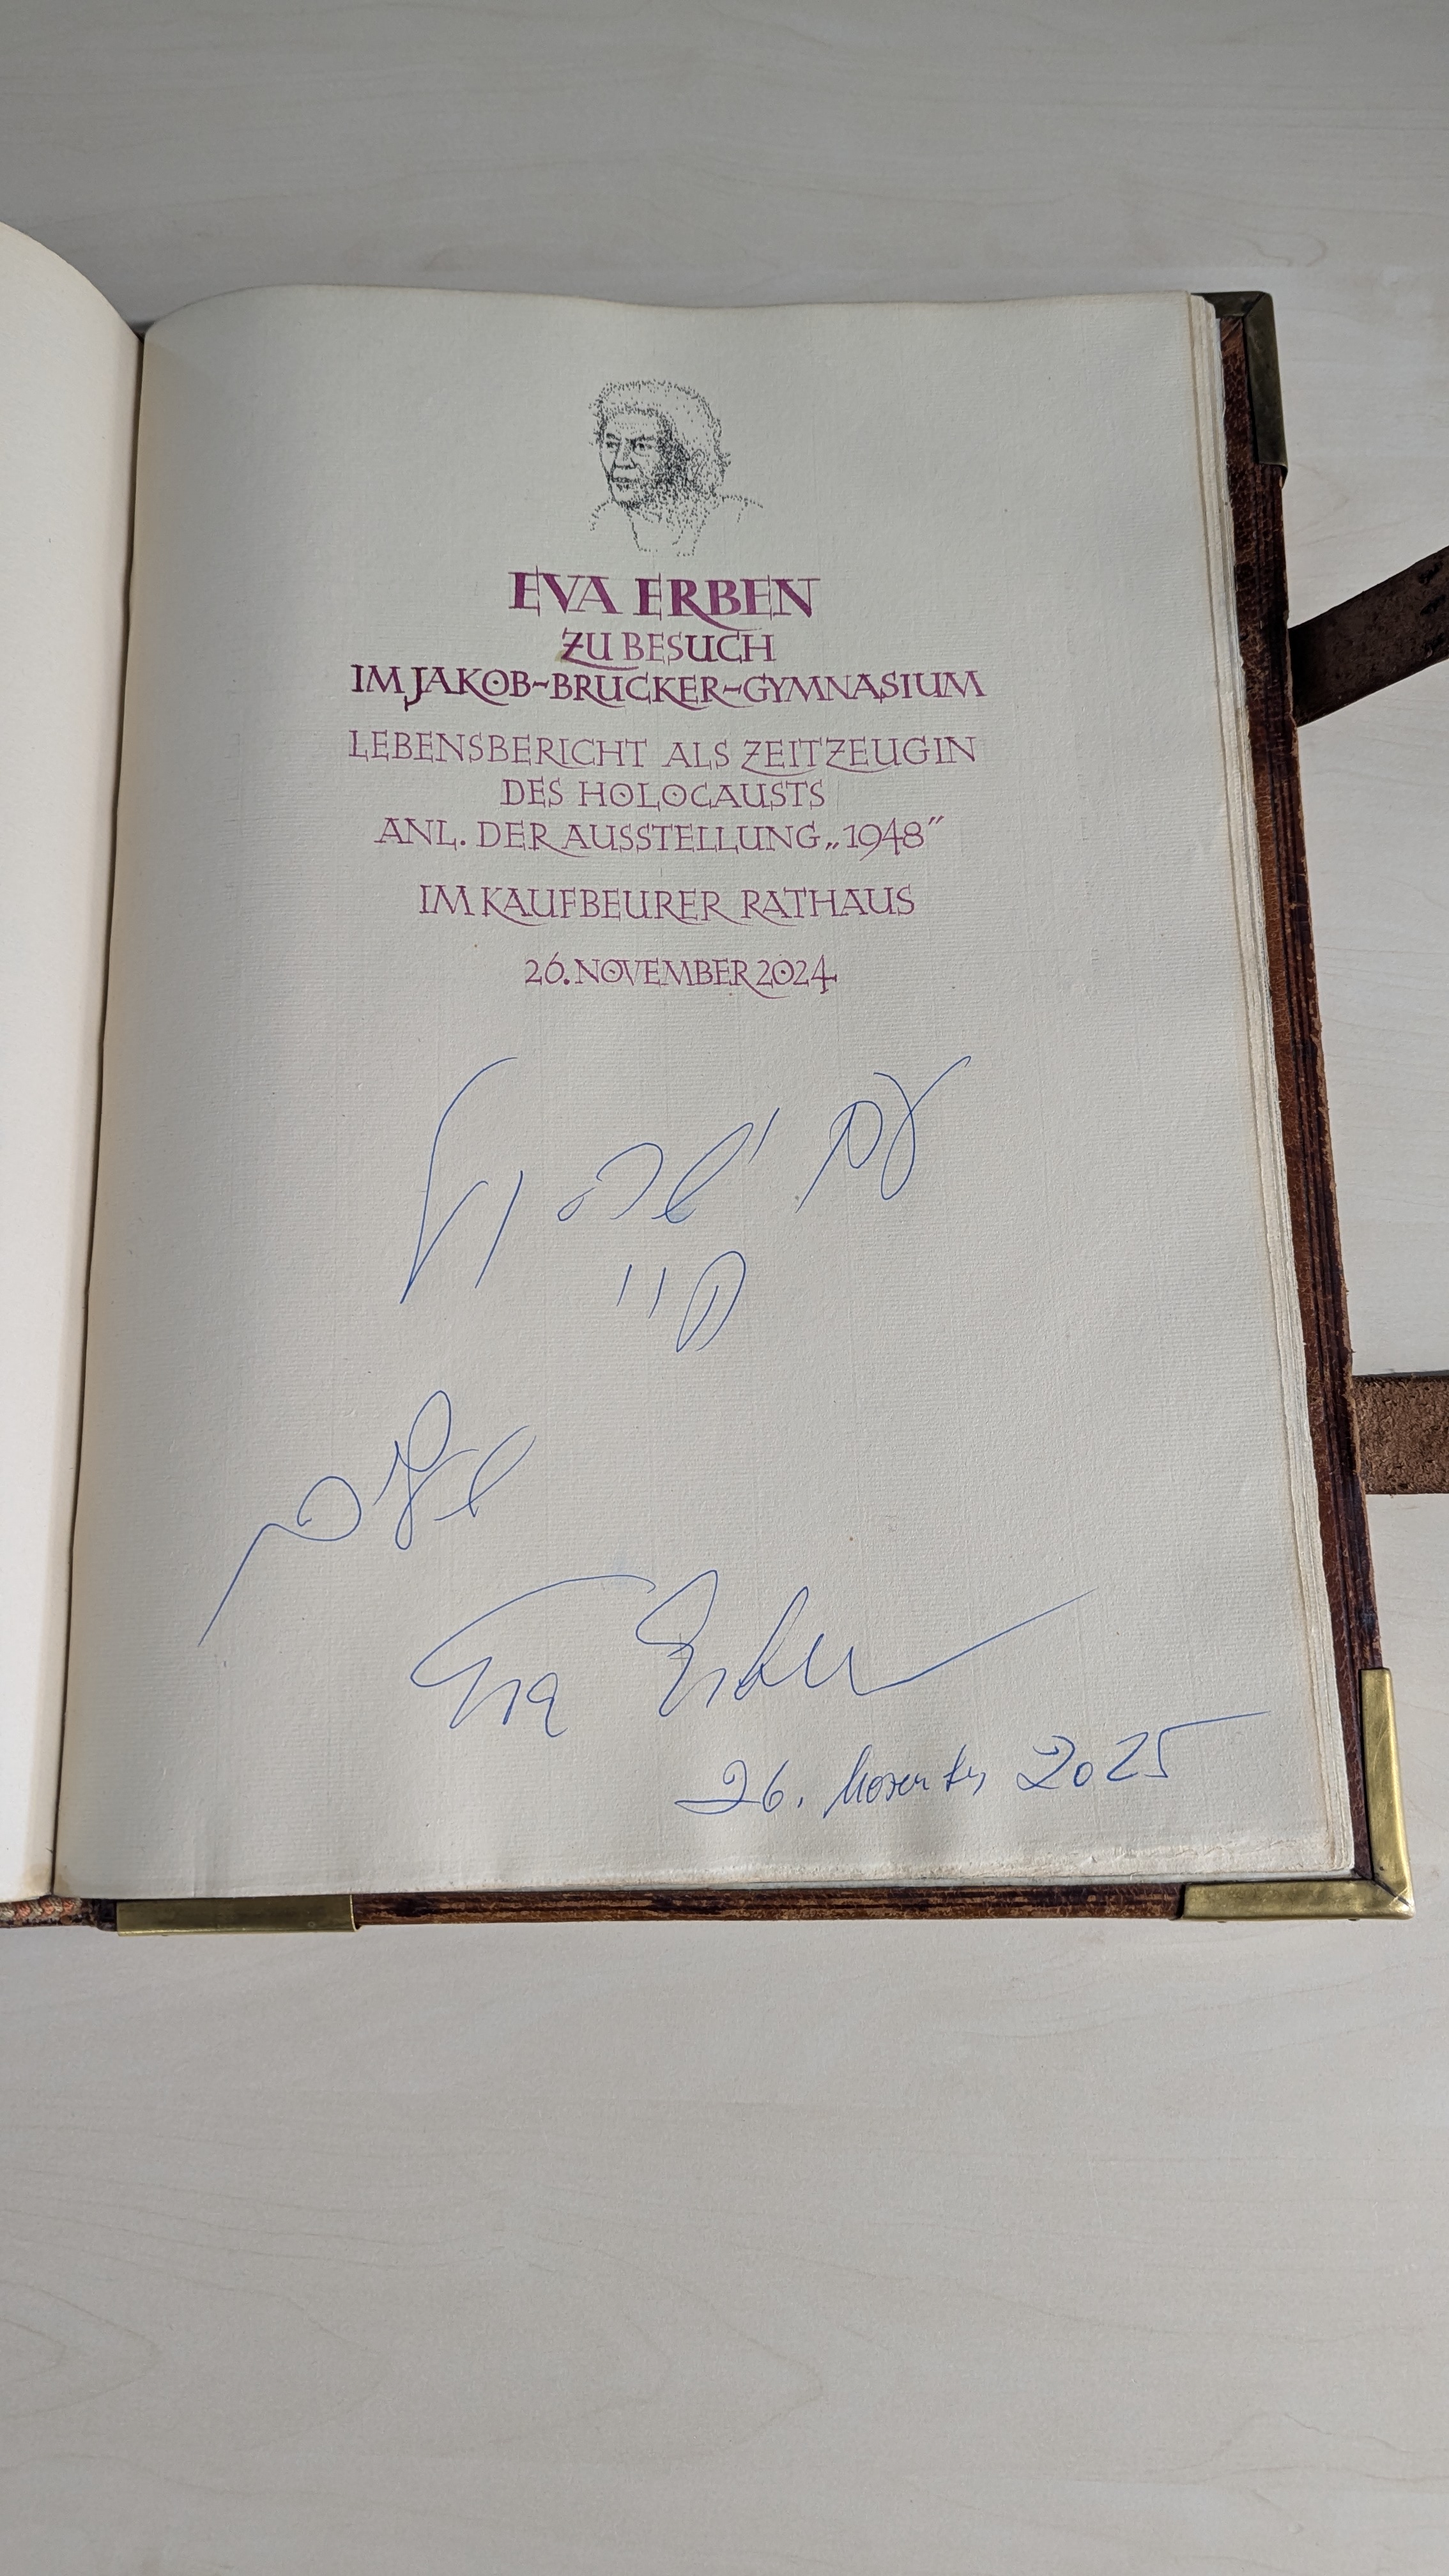 EVA ERBEN
ZU BESUCH
IM JAKOB-BRUCKER-GYMNASIUM
LEBENSBERICHT ALS ZEITZEUGIN
DES HOLOCAUSTS
ANL. DER AUSSTELLUNG „1948”
IM KAUFBEURER RATHAUS
26. NOVEMBER 2024
עם ישראל
חי
שלום
Eva Erben
26. November 2025